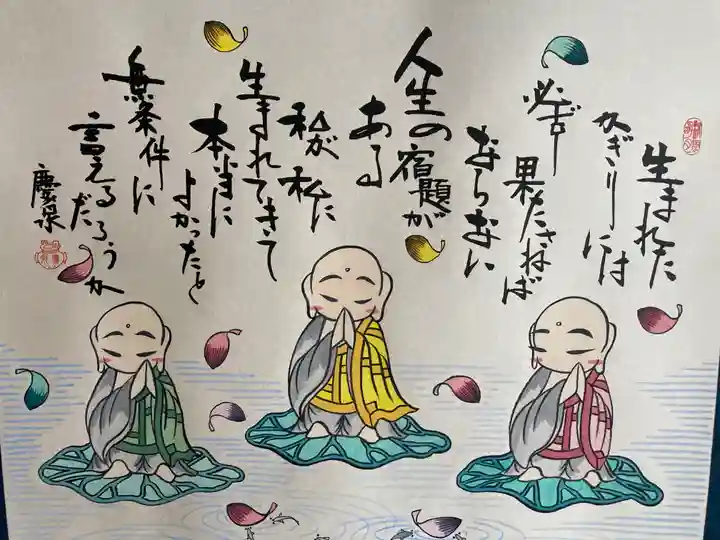 生まれた
かぎりには
必ず
果たさねば
ならない
人生の宿題が
ある
私が私に
生まれてきて
本当に
よかったと
無条件に
言えるだろうか
慶泉